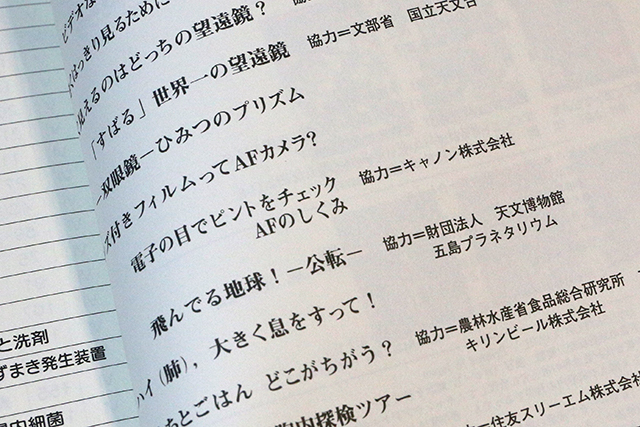 ビデオな
はっきり見るために
見えるのはどっちの望遠鏡？
「すばる」世界一の望遠鏡　協力＝文部省　国立天文台
双眼鏡－ひみつのプリズム
ズ付きフィルムってAFカメラ？
電子の目でピントをチェック　協力＝キャノン株式会社
AFのしくみ
飛んでる地球！－公転－　協力＝財団法人　天文博物館
五島プラネタリウム
ハイ（肺），大きく息をすって！
とごはん　どこがちがう？　協力＝農林水産省食品総合研究所
キリンビール株式会社
内探検ツアー
＝住友スリーエム株式会社
と洗剤
ずまき発生装置
内細菌